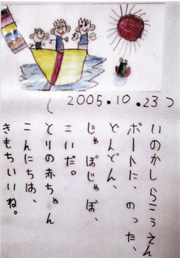 2005.10.23
いのかしらこうえん
ボートに、のった、
どんどん、
じゃぼじゃぼ、
こいだ。
とりの赤ちゃん
こんにちは、
きもちいいね。